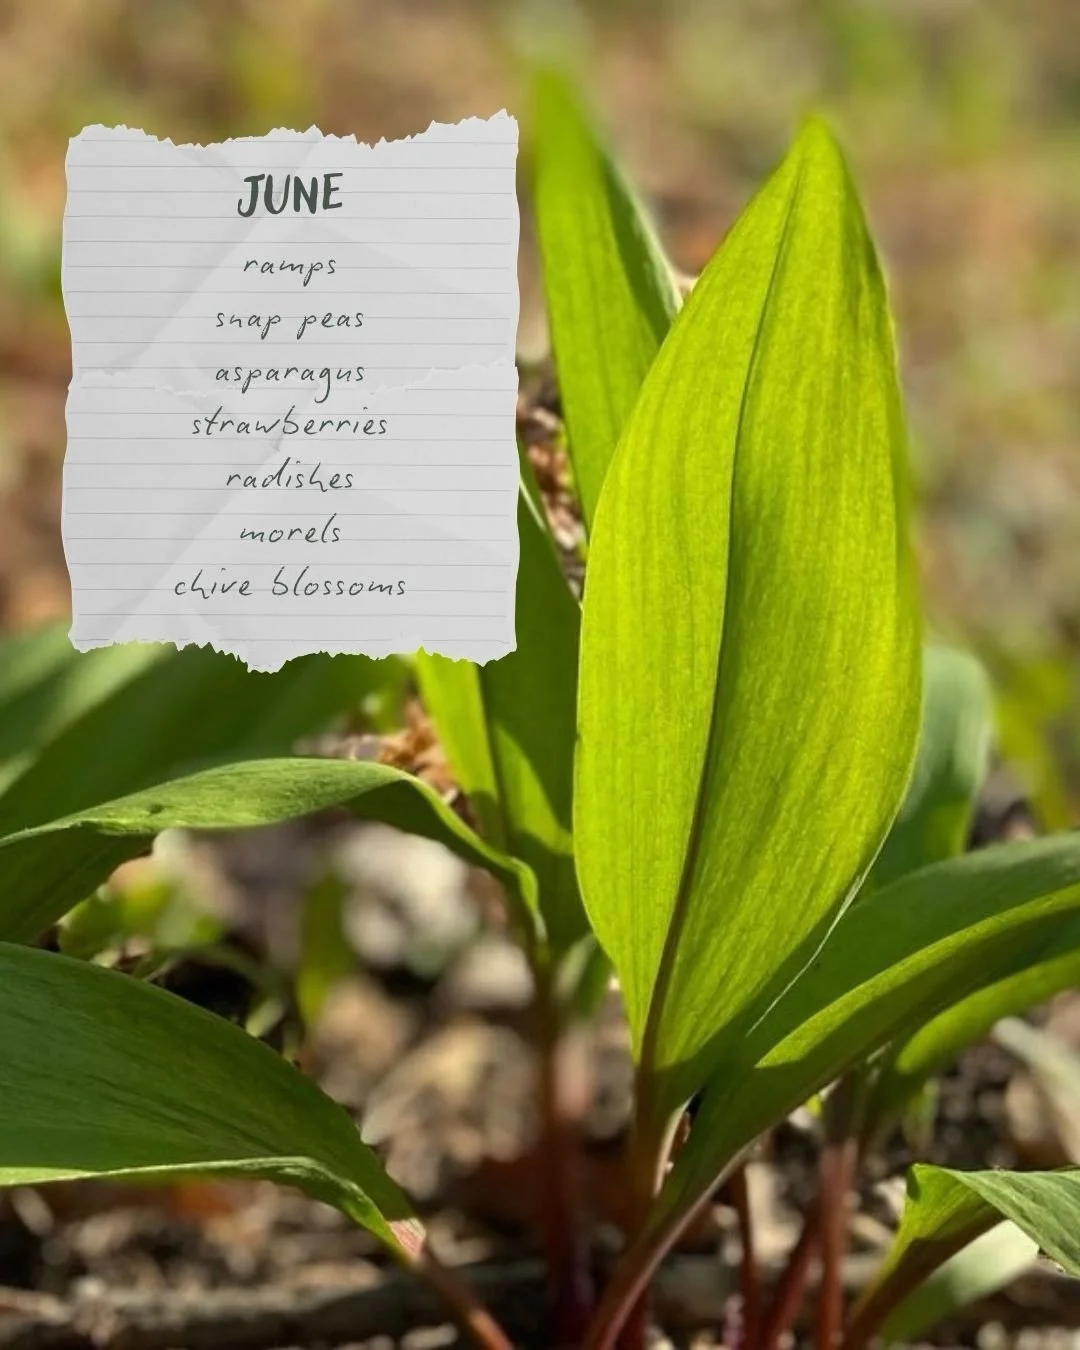 JUNE
ramps
snap peas
asparagus
strawberries
radishes
morels
chive blossoms